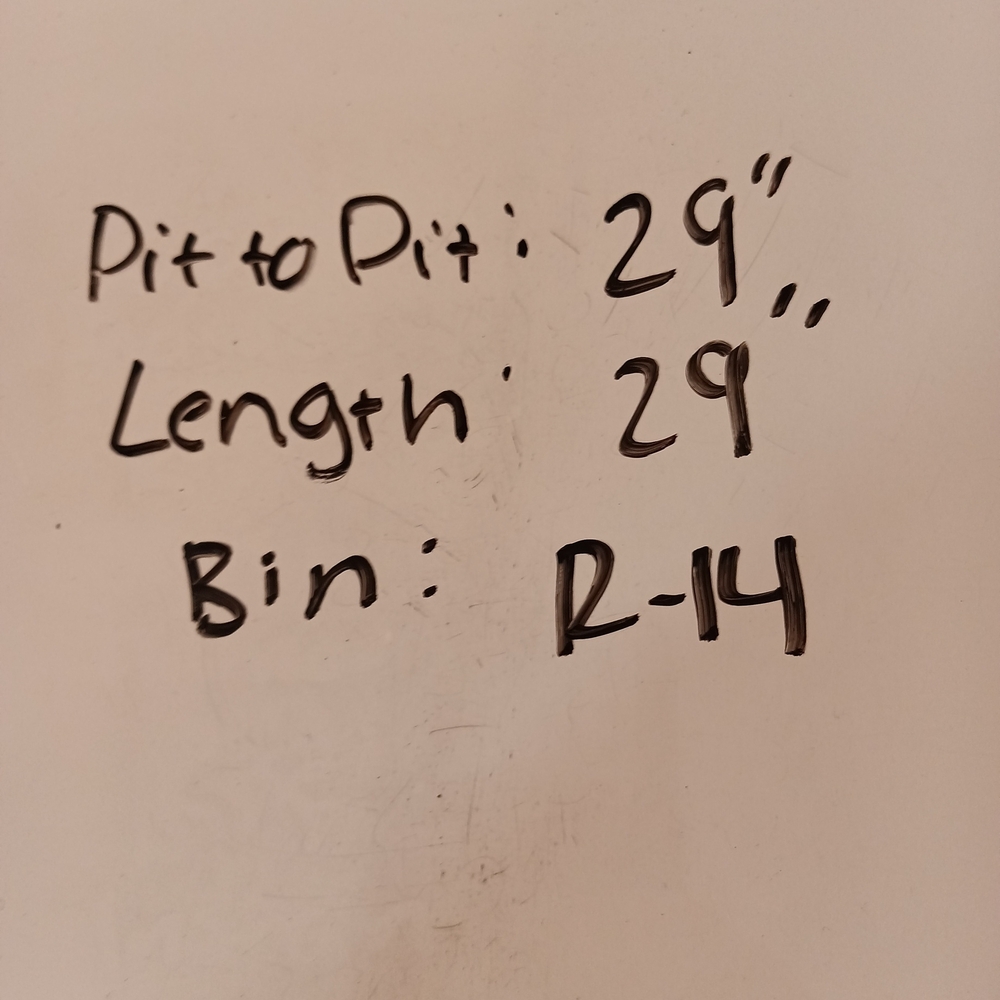 Pit to Pit: 29"
Length: 29"
Bin: R-14